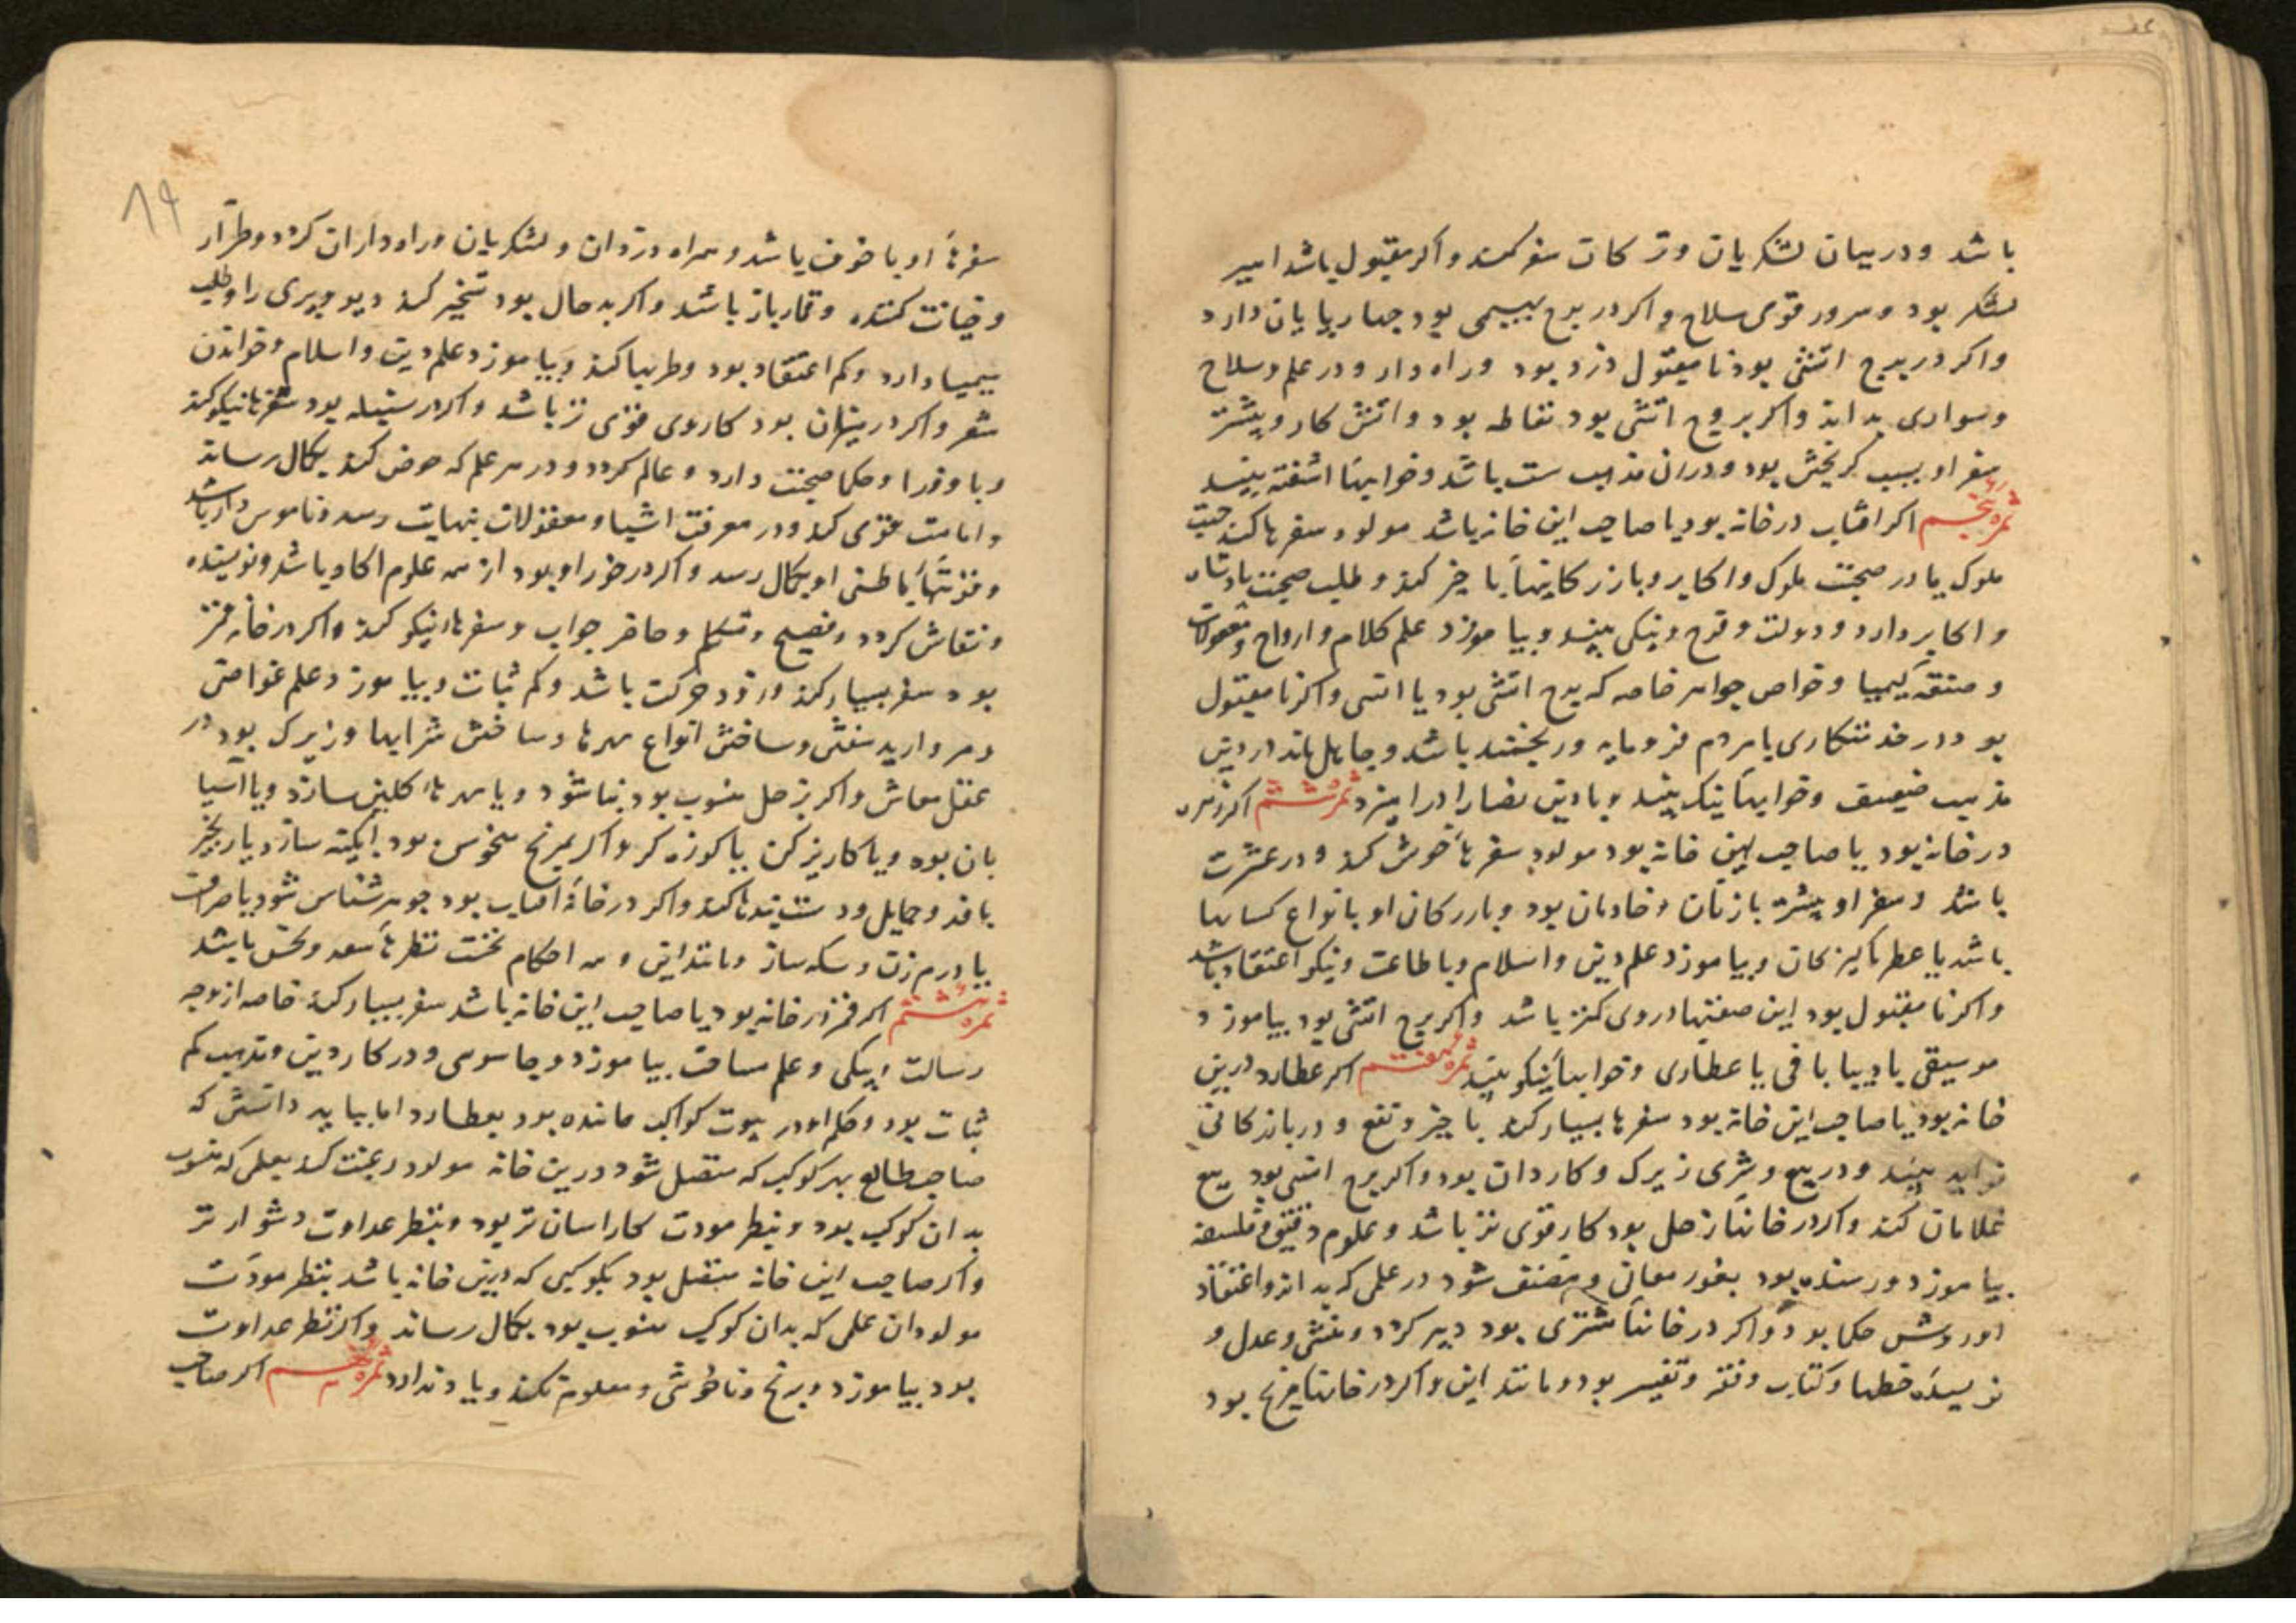 باشد و درمیان لشکریان و ترکان سفر کند و اکر مقبول باشد امیر
لشکر بود و سرور قوی سلاح و اکر در برج بهیمی بود چهارپایان دارد
واکر در برج اتشی بود نامقبول دزد بود و راه دار و در علم و سلاح
وسواری بداند واکر بروج اتشی بود نفاطه بود و اتش کار و بیشتر
سفر او بسبب کریختن بود و دران مذهب سست باشد و خوابهاء اشفته بیند
ثمره پنجم اکر افتاب در خانه بود یا صاحب این خانه باشد مولود سفرها کند جهت
ملوک یا در صحبت ملوک و اکابر و بازرکانیهاء با خیر کند و طلب صحبت پادشاه
و اکابر دارد و دولت و فرح و نیکی بیند و بیاموزد علم کلام و ارواح و معقولات
و صنعة کیمیا و خواص جواهر خاصه که برج اتشی بود یا انسی واکر نامقبول
بود در خدمتکاری با مردم فرومایه و رنجمند باشد و جاهل ماند در دین
مذهب ضعیف و خوابهاء نیک بیند و با دین نصارا درامیزد ثمره ششم اکر زهره
در خانه بود یا صاحب این خانه بود مولود سفرهاء خوش کند و در عشرت
باشد و سفر او بیشتر با زنان و خادمان بود و بازرکان او بانواع کسانها
باشد یا عطر یا کنیزکان و بیاموزد علم دین و اسلام و با طاعت و نیکو اعتقاد باشد
واکر نا مقبول بود این صفتها در وی کمتر باشد و اکر برج اتشی بود بیاموزد
موسیقی یا دیبا بافی یا عطاری و خوابهاء نیکو بیند ثمره هفتم اکر عطارد درین
خانه بود یا صاحب این خانه بود سفرها بسیار کند با خیر و نفع و در بازرکانی
بیند و در بیع و شری زیرک و کاردان بود و اکر برج انسی بود بیع
غلامان کند و اکر در خانهاء زحل بود کار قوی تر باشد و علوم دقیق و فلسفه
بیاموزد و رسنده بود بغور معانی و مصنف شود در علمی که بداند و اعتقاد
او روش حکما بود و اکر در خانهاء مشتری بود دبیر کردد و منشی و عدل و
نویسنده خطها و کتاب و فقه و تفسیر بود و مانند این و اکر در خانهاء مریخ بود
۸۹
سفرهاء او با خوف باشد و همراه دزدان و لشکریان و راه داران کردد و طرار
و خیانت کننده و قمار باز باشد و اکر بد حال بود تسخیر کند دیو و پری را و طلب
سیمیا دارد و کم اعتقاد بود و طربها کند و بیاموزد علم دین و اسلام و خواندن
شعر و اکر در میزان بود کار وی قوی تر باشد و اکر در سنبله بود سفرها نیکو کند
و با وزرا و حکما صحبت دارد و عالم کردد و در هر علم که خوض کند بکمال رساند
و امامت و فتوی کند و در معرفت اشیا و معقولات بنهایت رسد و ناموس دار باشد
و قوتهاء باطنی او بکمال رسد و اکر در خور او بود از همه علوم اکاه باشد و نویسنده
و نقاش کردد و فصیح و متکلم و حاضر جواب و سفرهاء نیکو کند و اکر در خانه قمر
بود سفر بسیار کند و زود حرکت باشد و کم ثبات و بیاموزد علم غواصی
و مروارید سفتن و ساختن انواع مهرها و ساختن شرابها و زیرک بود در
عقل معاش و اکر بزحل منسوب بود بنا شود و یا مهرهاء کلین سازد و یا اسیا
بان بود و یا کاریز کن یا کوزه کر و اکر بمریخ منحوس بود ابکینه سازد یا زنجیر
بافد و حمایل و دست بندها کند و اکر در خانهٔ افتاب بود جوهر شناس شود یا صراف
یا درم زن و سکه ساز و مانند این و همه احکام تحت نظرهاء سعد و نحس باشد
ثمره هشتم اکر قمر در خانه بود یا صاحب این خانه باشد سفر بسیار کند خاصه از وجه
رسالت و پیکی و علم مسافت بیاموزد و جاسوسی و در کار دین و مذهب کم
ثبات بود و حکم او در بیوت کواکب ماننده بود بعطارد اما بباید دانستن که
صاحب طالع بهر کوکب که متصل شود درین خانه مولود رغبت کند بعلمی که منسوب
بدان کوکب بود و بنظر مودت کار اسان تر بود و بنظر عداوت دشوارتر
و اکر صاحب این خانه متصل بود بکوکبی که درین خانه باشد بنظر مودّت
مولود ان علمی که بدان کوکب منسوب بود بکمال رساند و اکر نظر عداوت
بود بیاموزد و برنج و ناخوشی و معلوم نکند و یاد ندارد ثمره نهم اکر صاحب